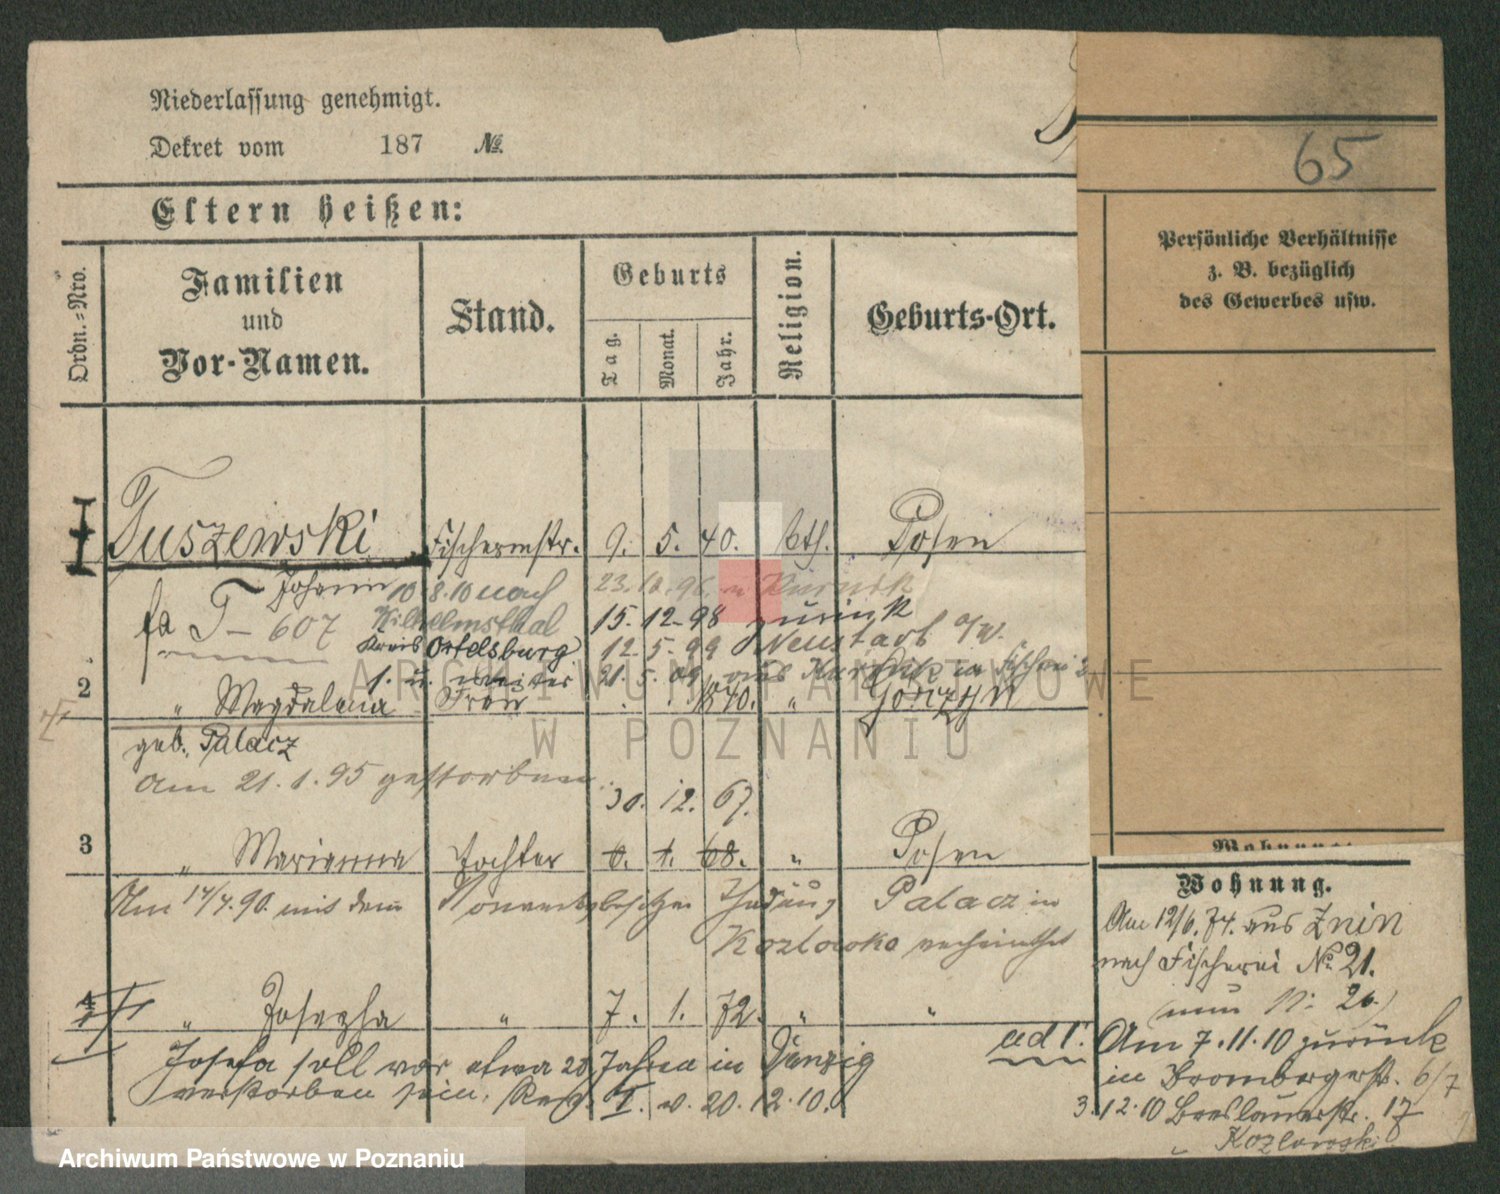 Niederlassung genehmigt.
Dekret vom 187 №.
65
Eltern heißen:
Ordn.-Nro.
Familien
und
Vor-Namen.
Stand.
Geburts
Tag.
Monat.
Jahr.
Religion.
Geburts-Ort.
Persönliche Verhältnisse
z. B. bezüglich
des Gewerbes usw.
Tuszewski Fischermstr. 9. 5. 40. kth. Posen
Johann 10 8.10 nach 23.10.96. n Kurnik
fa T-607 Wilhelmsthal 15.12.98 zurück
Kreis Ortelsburg 12.5.99 Neustadt a/W.
21.5.09 aus Kurnik in Fischerei
2 " Magdalena Frau 1840. " Gorzyn
geb. Palacz
Am 21.1.95 gestorben.
30. 12. 67.
3 " Marianna Tochter 6. 1. 68. " Posen
Am 17/7.90. mit dem Thadäus Palacz in
verheirathet
4 " Josepha " 7. 1. 72. " "
Josefa soll vor etwa 20 Jahren in Danzig
verstorben sein. Reg. I. v. 20.12.10.
ad 1.
Wohnung.
Wohnung.
Am 12/6.74. aus Znin
nach Fischerei № 21.
(nun N: 26.)
Am 7.11.10 zurück
in Brombergerstr. 6/7
3.12.10 Breslauerstr. 17
Kozlowski
ARCHIWUM PAŃSTWOWE
W POZNANIU
Archiwum Państwowe w Poznaniu